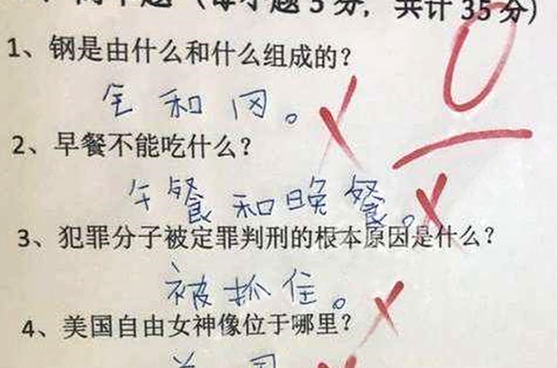 (每小题5分，共计35分)
1、钢是由什么和什么组成的？
全和冈。
0
2、早餐不能吃什么？
午餐和晚餐。
3、犯罪分子被定罪判刑的根本原因是什么？
被抓住。
4、美国自由女神像位于哪里？